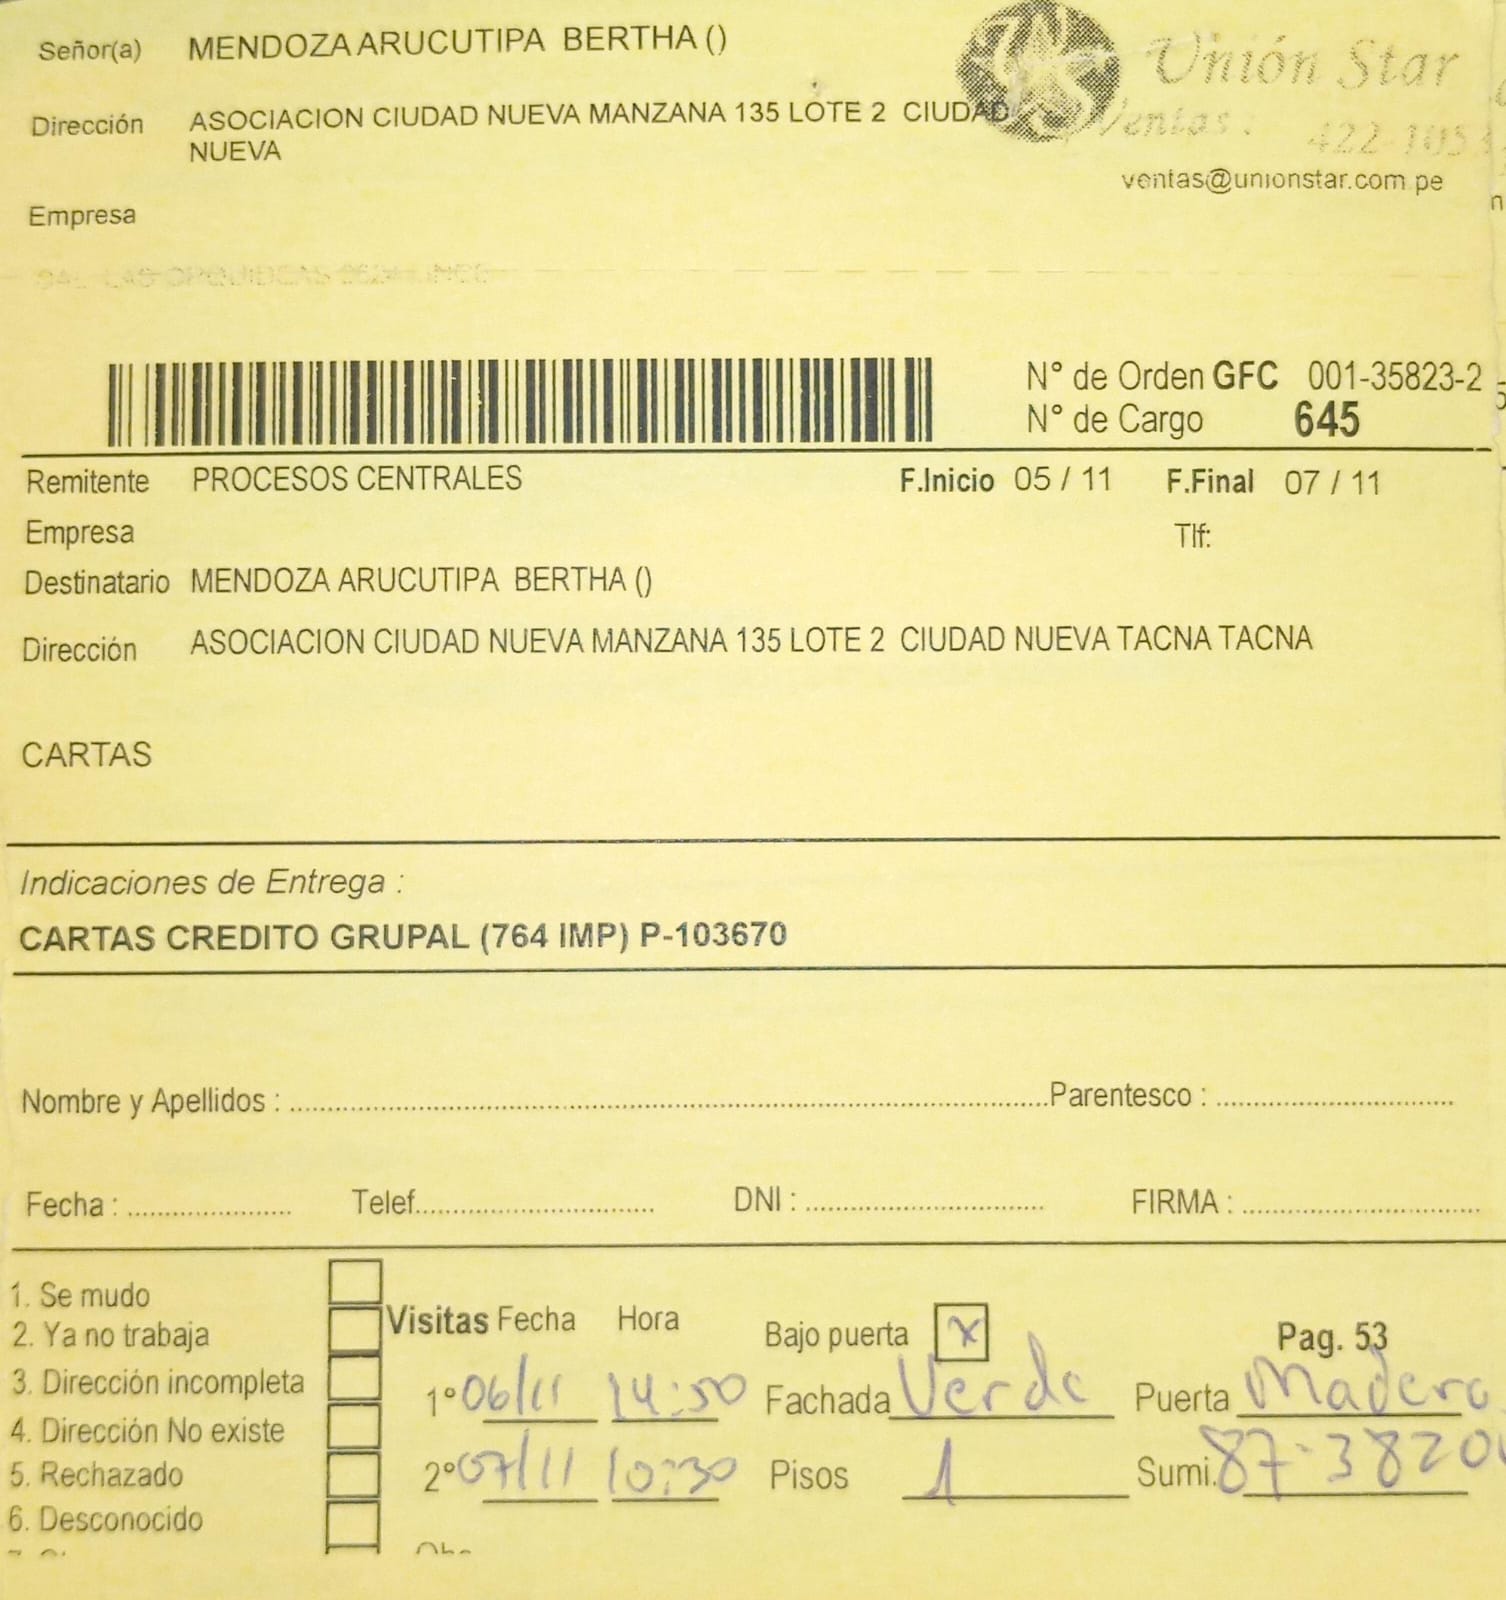 Señor(a) MENDOZA ARUCUTIPA BERTHA ()
Unión Star
Dirección ASOCIACION CIUDAD NUEVA MANZANA 135 LOTE 2 CIUDAD
NUEVA
Ventas : 422-1053
ventas@unionstar.com.pe
Empresa
N° de Orden GFC 001-35823-2
N° de Cargo 645
Remitente PROCESOS CENTRALES F.Inicio 05 / 11 F.Final 07 / 11
Empresa Tlf:
Destinatario MENDOZA ARUCUTIPA BERTHA ()
Dirección ASOCIACION CIUDAD NUEVA MANZANA 135 LOTE 2 CIUDAD NUEVA TACNA TACNA
CARTAS
Indicaciones de Entrega :
CARTAS CREDITO GRUPAL (764 IMP) P-103670
Nombre y Apellidos : Parentesco :
Fecha : Telef. DNI : FIRMA :
1. Se mudo
2. Ya no trabaja
3. Dirección incompleta
4. Dirección No existe
5. Rechazado
6. Desconocido
Visitas Fecha Hora
1° 06/11 14:50
2° 07/11 10:30
Bajo puerta X
Fachada Verde
Pisos 1
Pag. 53
Puerta Madera
Sumi. 87-3820